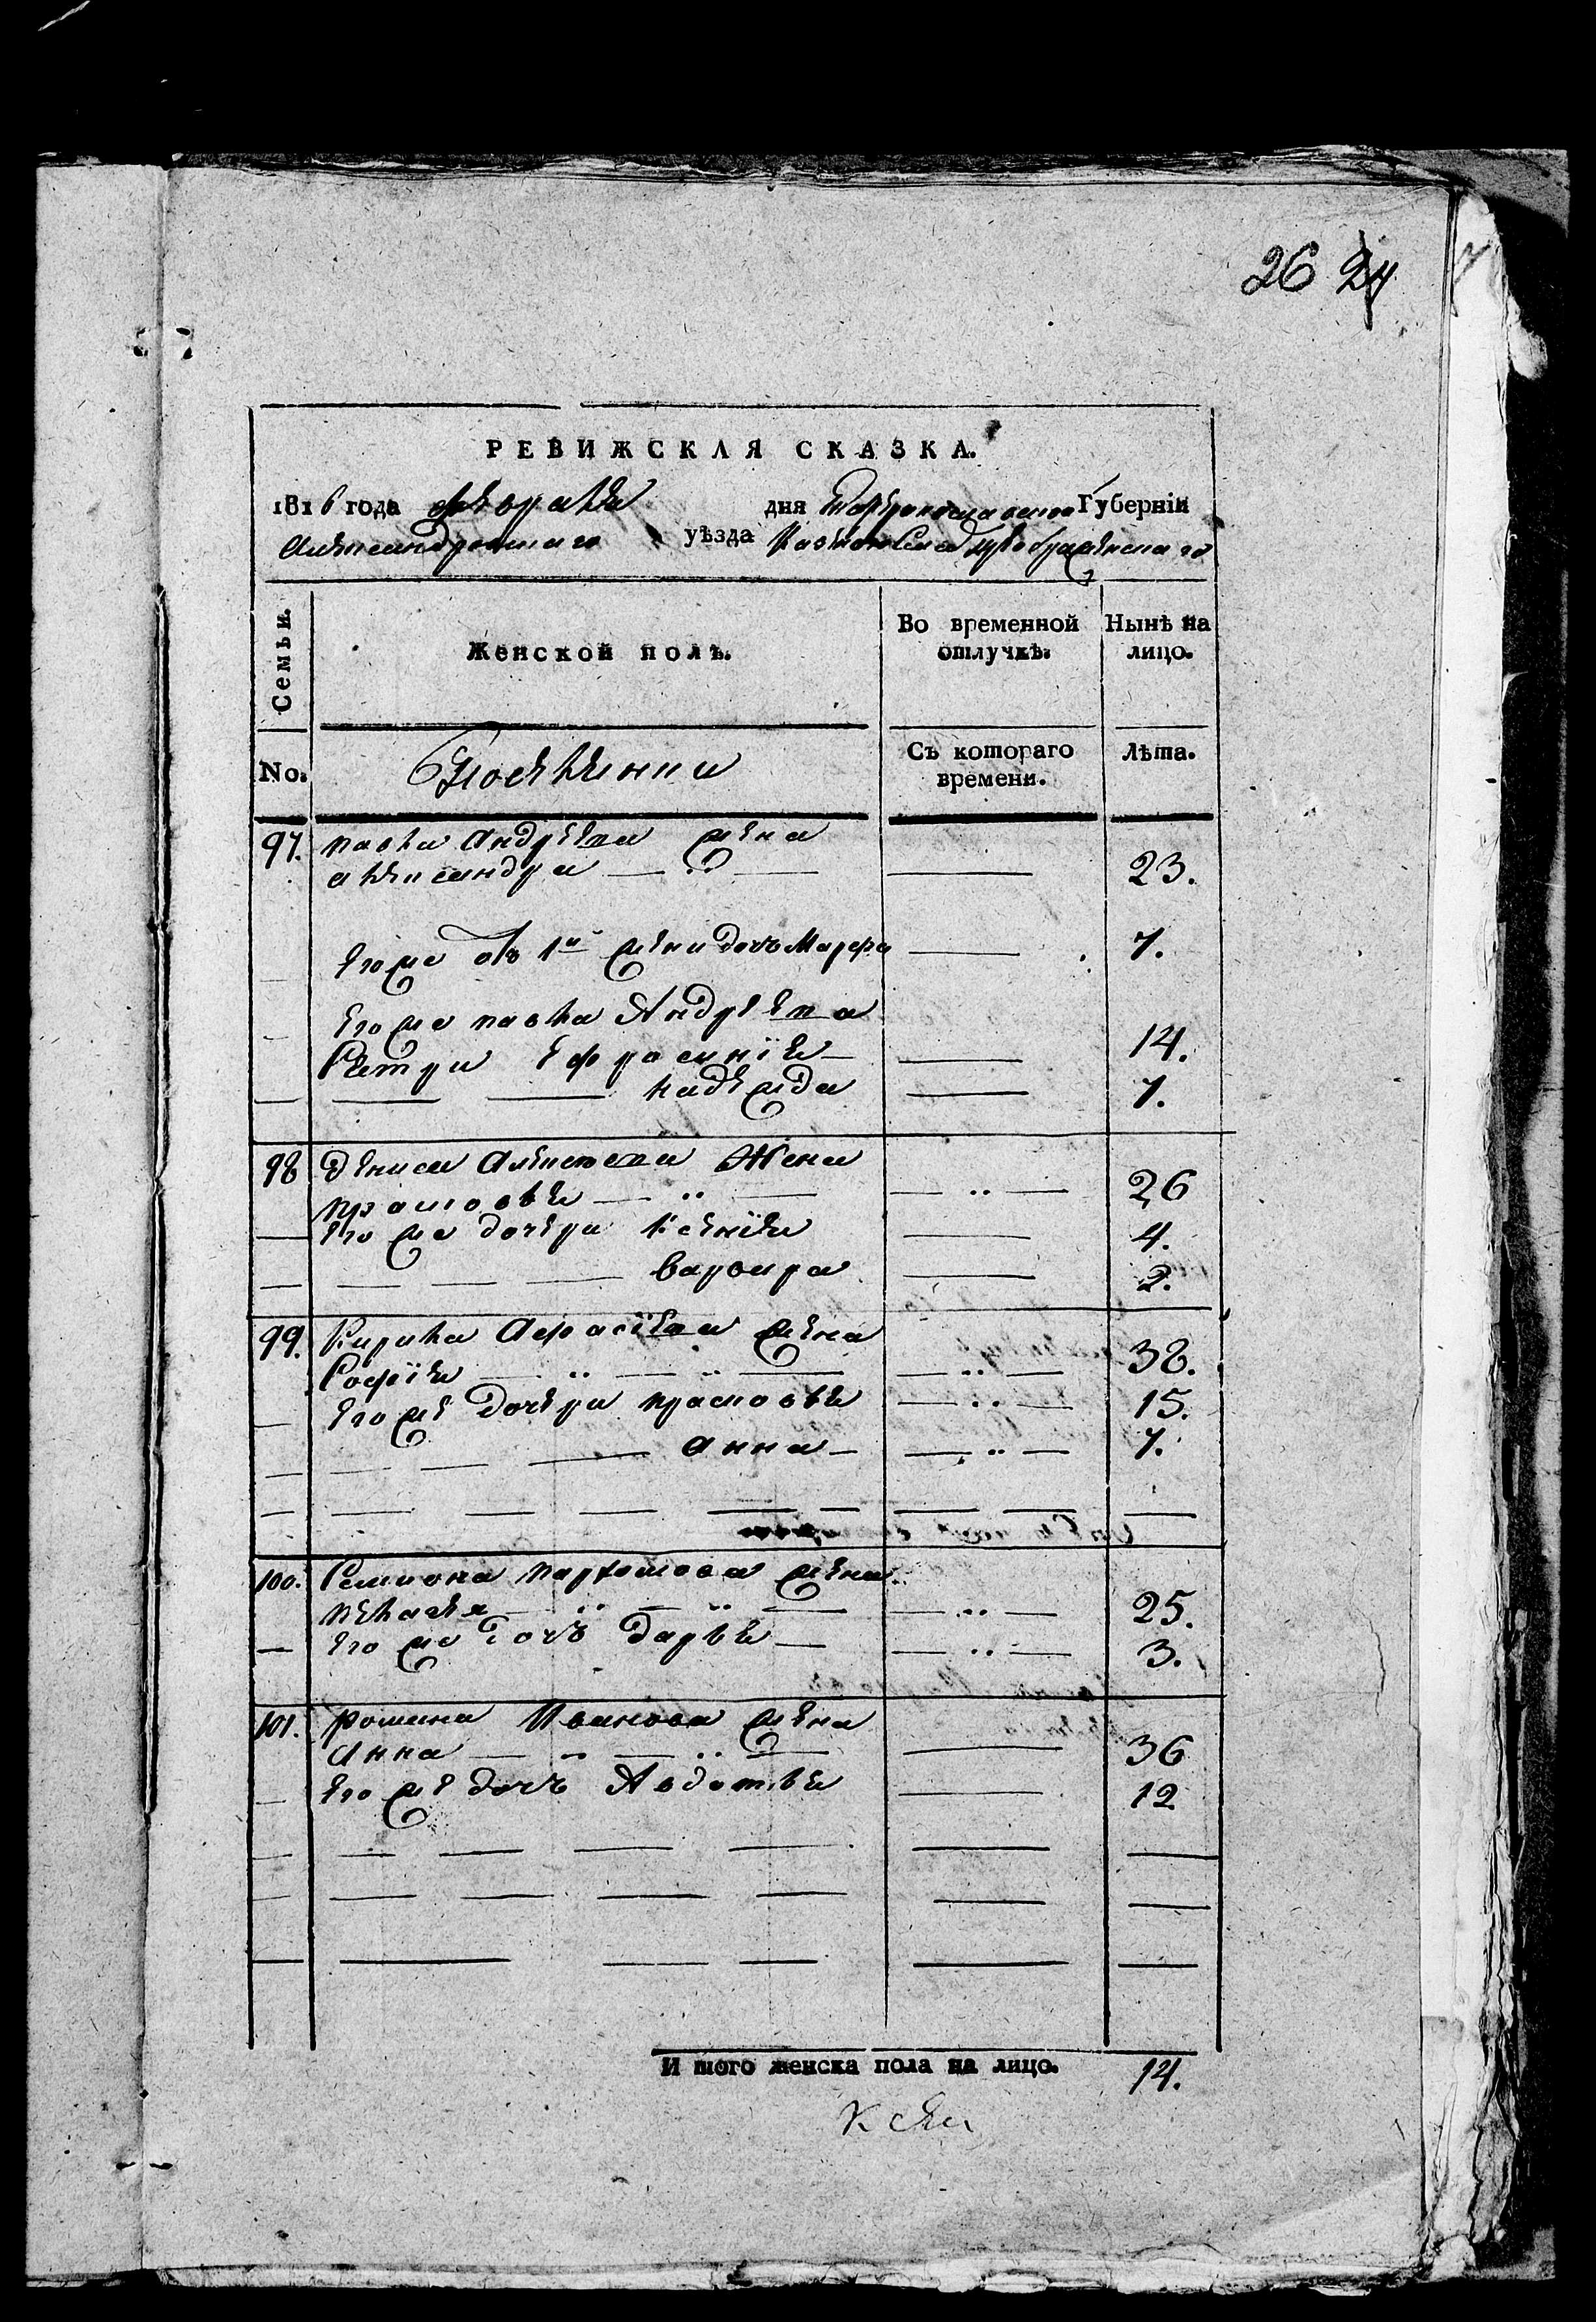 26 24
РЕВИЖСКАЯ СКАЗКА.
1816 года февраля дня Екатеринославской Губерніи
Александровскаго уѣзда Казенной Слободы Преображенскаго
Семьи.
Женской полъ.
Во временной отлучкѣ.
Нынѣ на лицо.
No.
Съ котораго времени.
Лѣта.
97. павла Андреева жена
александра 23.
его же отъ 1й жены дочь Марфа 7.
его же павла Андреева
сестры Ефросинія 14.
надежда 7.
98 дениса Алексеева Жена
прасковья 26
его же дочери Ксенія 4.
варвара 2.
99. Кирила Афанасіева жена
Софія 38.
его же дочери прасковья 15.
анна 7.
100. Семиона пархомова жена
пелагея 25.
его же дочь дарья 3.
101. романа Иванова жена
Анна 36
его же дочь Авдотья 12
И того женска пола на лицо. 14.